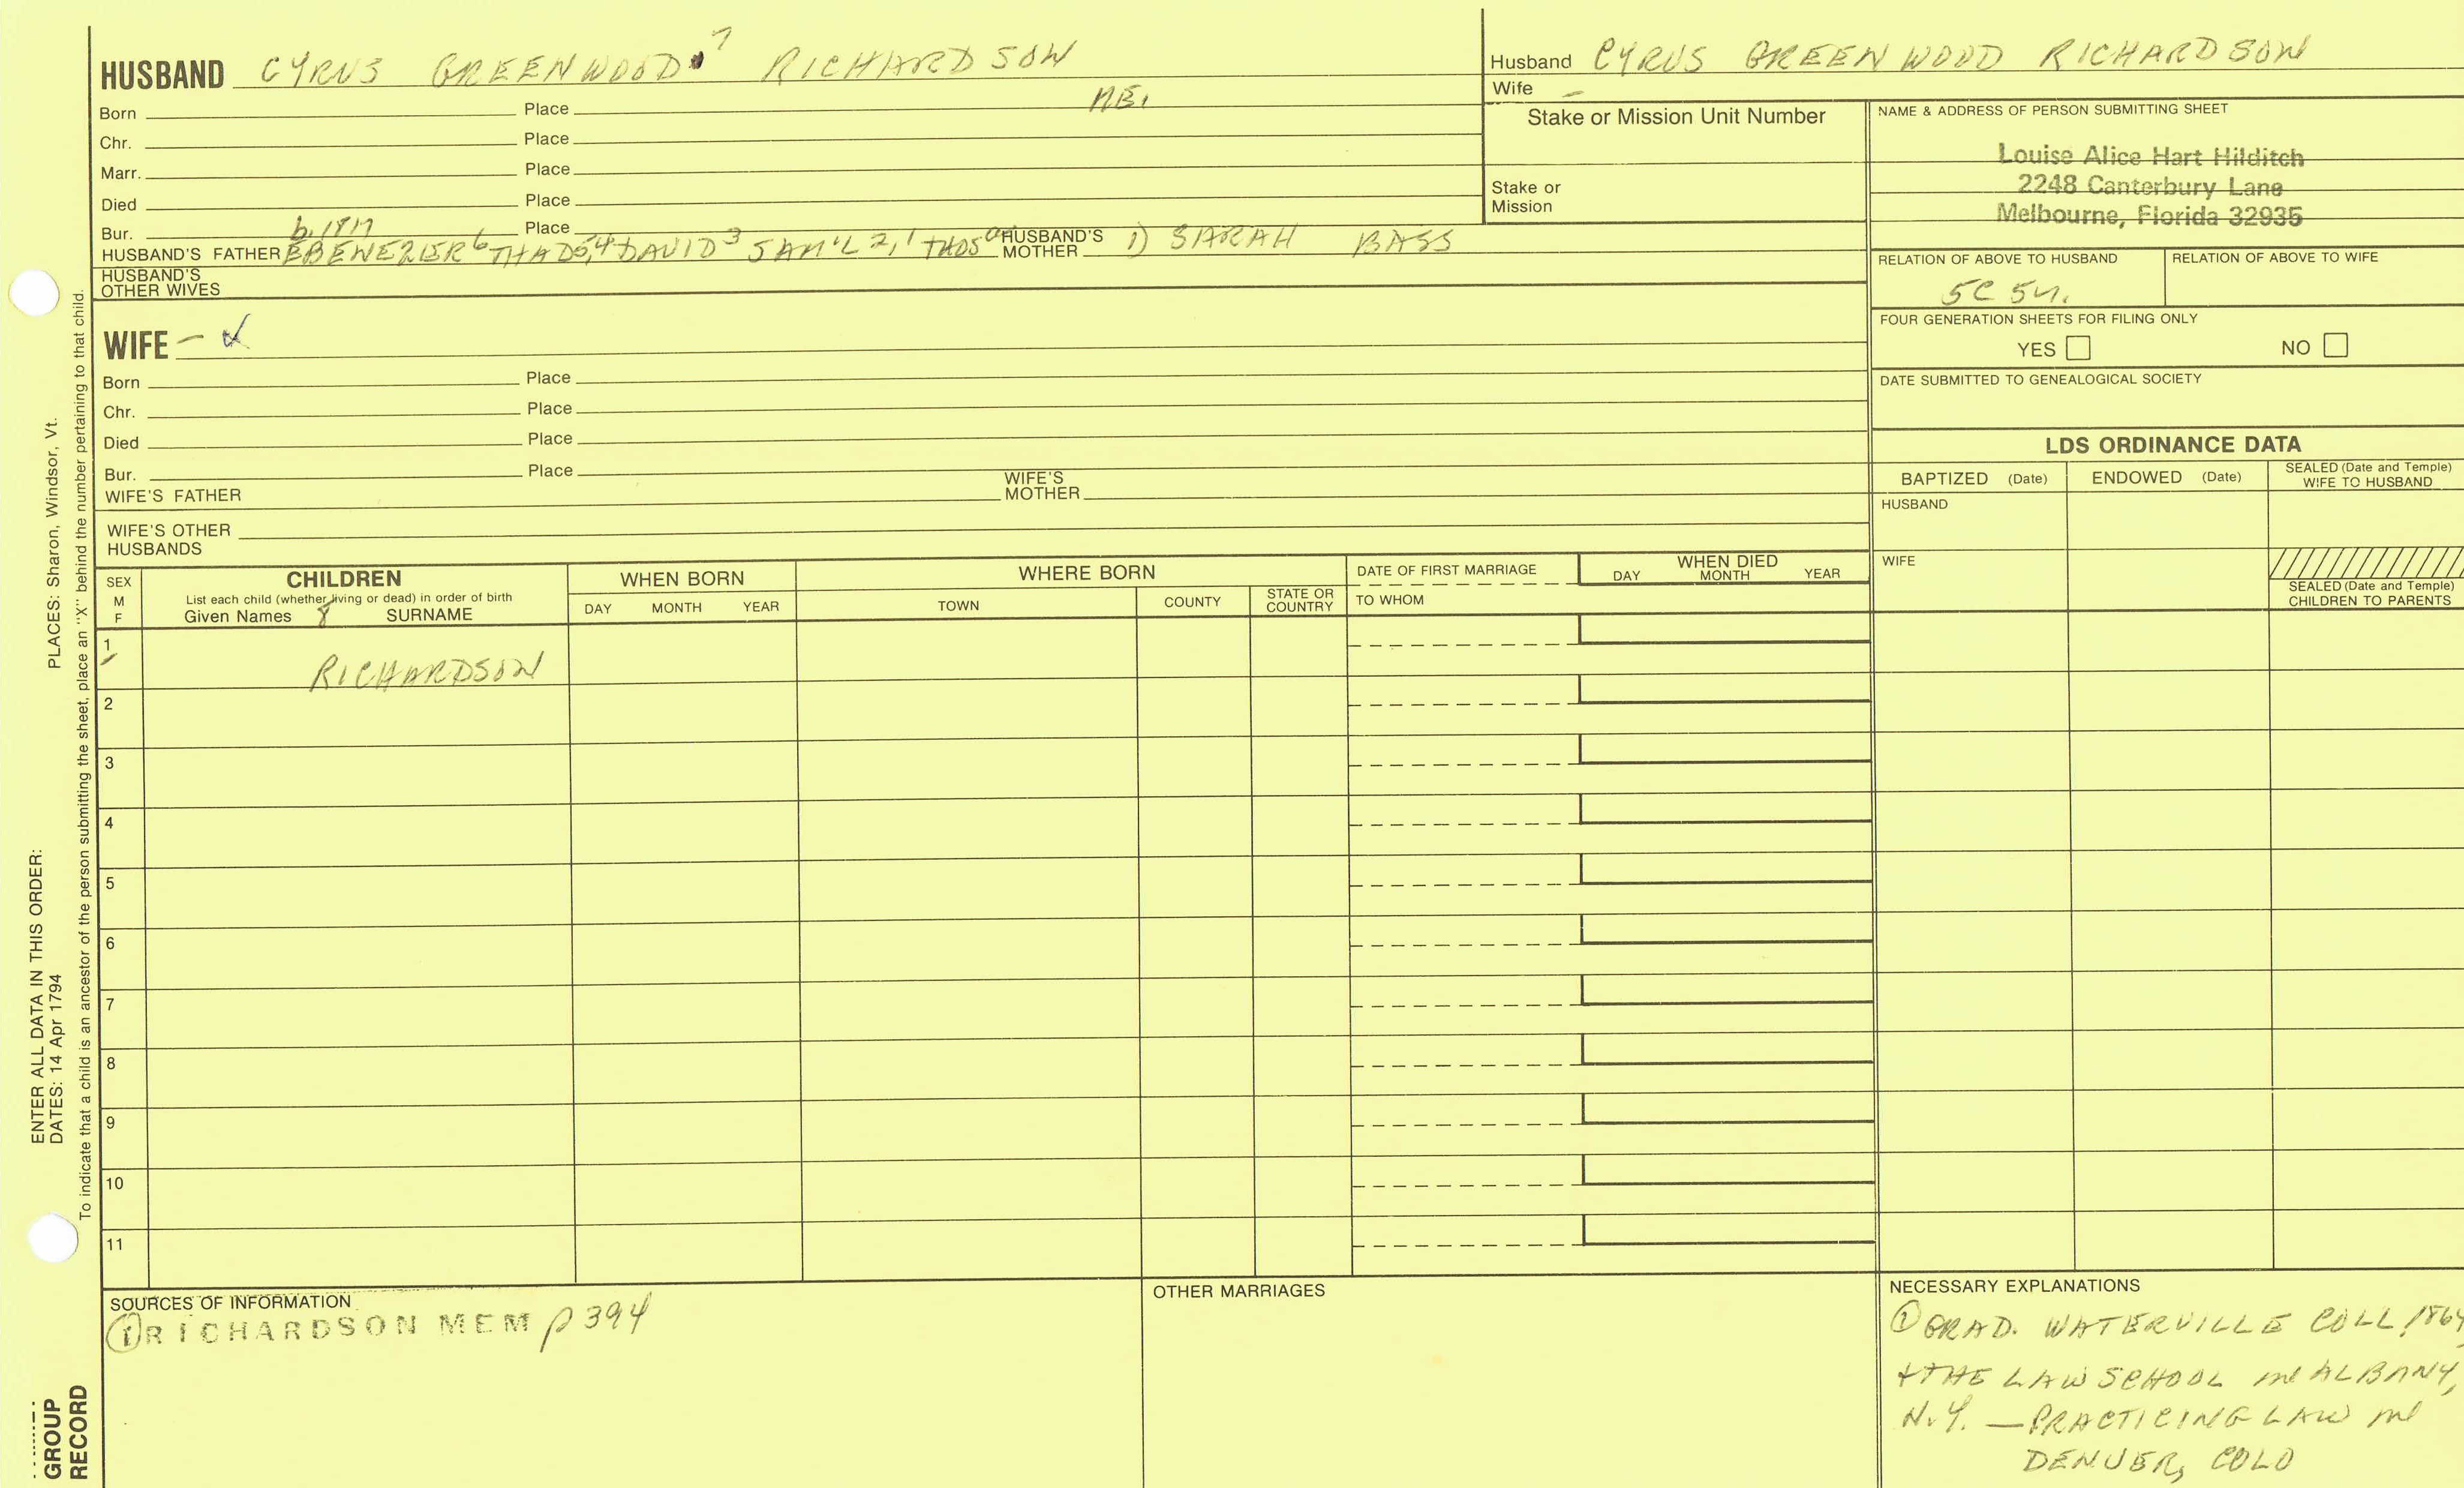 HUSBAND CYRUS GREENWOOD 7 RICHARDSON
Born Place ME.
Chr. Place
Marr. Place
Died Place
Bur. Place
b. 1817
HUSBAND'S FATHER EBENEZER 6 THAD 5, 4 DAVID 3 SAM'L 2, 1 THOS 0 HUSBAND'S MOTHER 1) SARAH BASS
HUSBAND'S OTHER WIVES
WIFE –
Born Place
Chr. Place
Died Place
Bur. Place
WIFE'S FATHER WIFE'S MOTHER
WIFE'S OTHER HUSBANDS
Husband CYRUS GREENWOOD RICHARDSON
Wife –
Stake or Mission Unit Number
Stake or Mission
NAME & ADDRESS OF PERSON SUBMITTING SHEET
Louise Alice Hart Hilditch
2248 Canterbury Lane
Melbourne, Florida 32935
RELATION OF ABOVE TO HUSBAND RELATION OF ABOVE TO WIFE
5C
FOUR GENERATION SHEETS FOR FILING ONLY
YES NO
DATE SUBMITTED TO GENEALOGICAL SOCIETY
LDS ORDINANCE DATA
BAPTIZED (Date) ENDOWED (Date) SEALED (Date and Temple) WIFE TO HUSBAND
HUSBAND
WIFE
SEALED (Date and Temple) CHILDREN TO PARENTS
SEX M F
CHILDREN
List each child (whether living or dead) in order of birth
Given Names 8 SURNAME
WHEN BORN
DAY MONTH YEAR
WHERE BORN
TOWN COUNTY STATE OR COUNTRY
DATE OF FIRST MARRIAGE
TO WHOM
WHEN DIED
DAY MONTH YEAR
1 RICHARDSON
2
3
4
5
6
7
8
9
10
11
SOURCES OF INFORMATION
① RICHARDSON MEM p 394
OTHER MARRIAGES
NECESSARY EXPLANATIONS
① GRAD. WATERVILLE COLL, 1864,
+ THE LAW SCHOOL in ALBANY,
N.Y. — PRACTICING LAW in
DENVER, COLO
PLACES: Sharon, Windsor, Vt.
To indicate that a child is an ancestor of the person submitting the sheet, place an "X" behind the number pertaining to that child.
ENTER ALL DATA IN THIS ORDER:
DATES: 14 Apr 1794
GROUP
RECORD